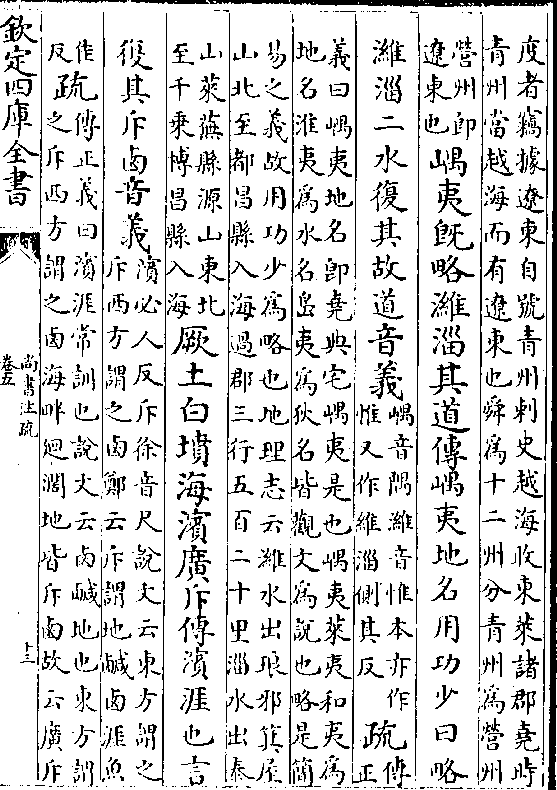 度者竊據遼東自號青州刺史越海收東萊諸郡堯時
青州當越海而有遼東也舜爲十二州分青州爲營州
營州即
遼東也
嵎夷旣略濰淄其道傳嵎夷地名用功少曰略
濰淄二水復其故道音義
嵎音隅濰音惟本亦作
惟又作維淄側其反
疏
傳
正
義曰嵎夷地名即堯典宅嵎夷是也嵎夷萊夷和夷爲
地名淮夷爲水名島夷爲狄名皆觀文爲說也略是簡
易之義故用功少爲略也地理志云濰水出琅邪箕屋
山北至都昌縣入海過郡三行五百二十里淄水出泰
山萊蕪縣源山東北
至千乗博昌縣入海
厥土白墳海濱廣斥傳濱涯也言
復其斥鹵音義
濱必人反斥徐音尺說文云東方謂之
斥西方謂之鹵鄭云斥謂地鹹鹵涯魚
佳
反
疏
傳正義曰濱涯常訓也說文云鹵鹹地也東方謂
之斥西方謂之鹵海畔迴濶地皆斥鹵故云廣斥
欽定四庫全書
尚書注疏
卷五
十三